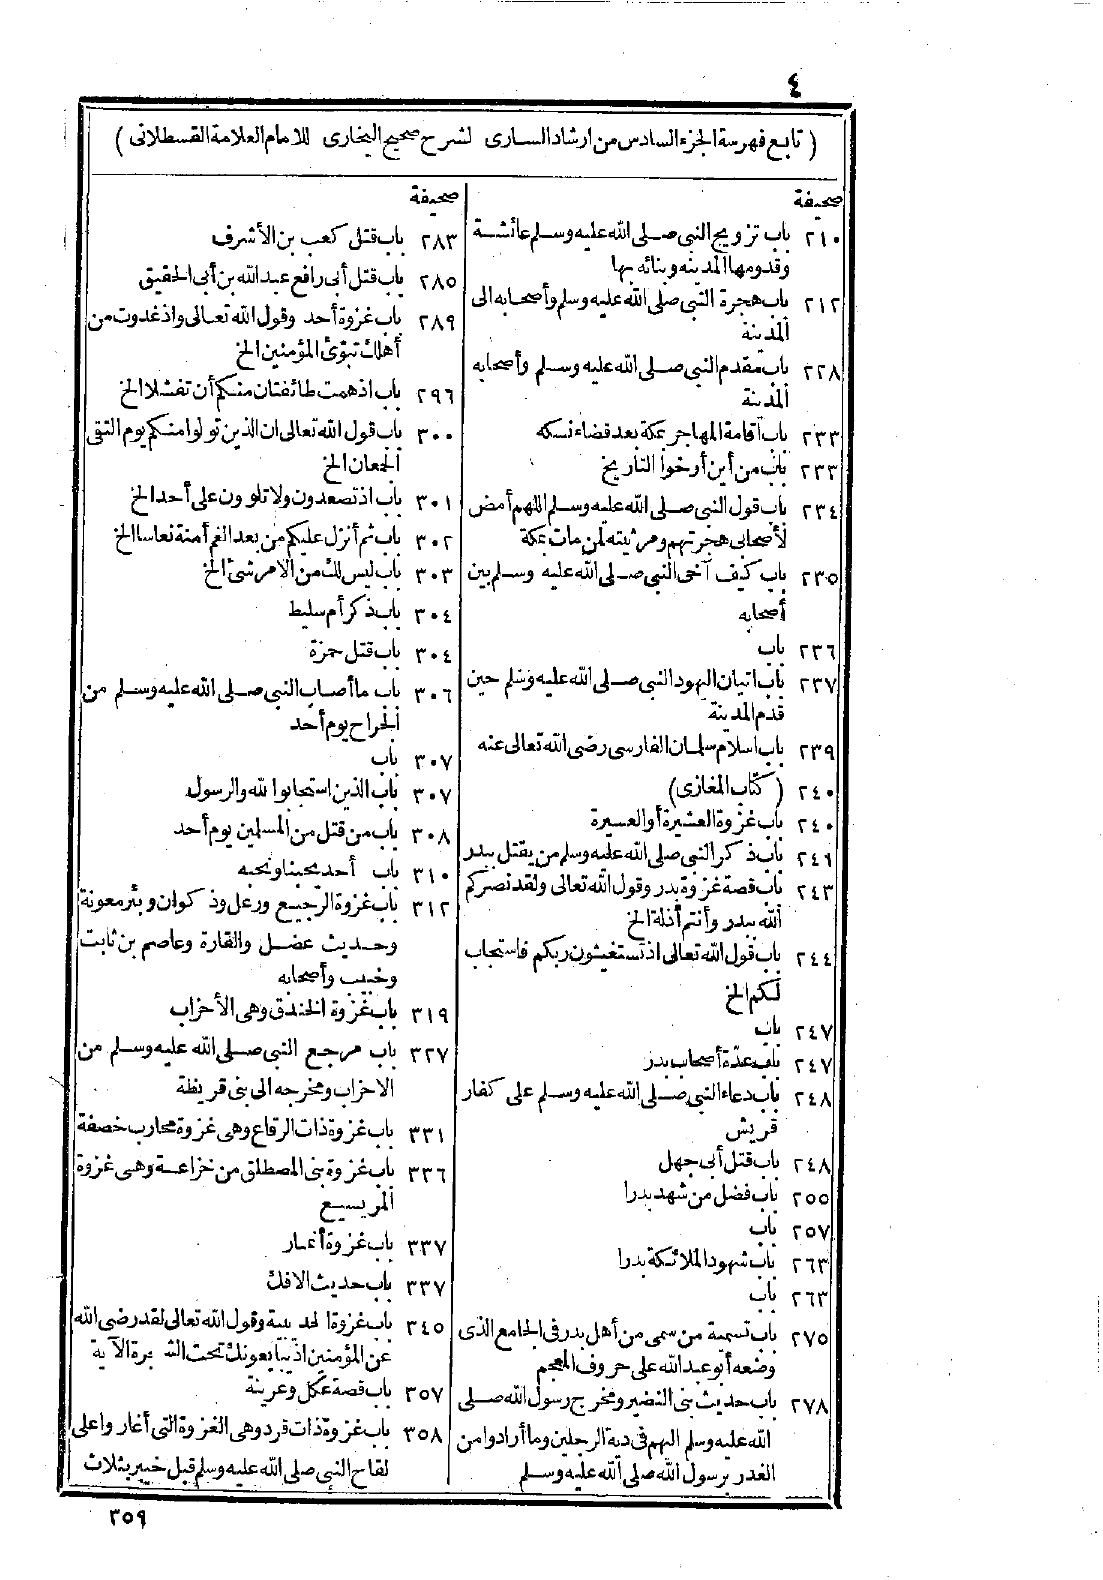 ٤
( تابع فهرسة الجزء السادس من ارشاد السارى لشرح صحيح البخارى للامام العلامة القسطلانى )
صحيفة
٢١٠ باب تزويج النبى صلى الله عليه وسلم عائشة
وقدومها المدينه وبنائه بها
٢١٢ باب هجرة النبى صلى الله عليه وسلم وأصحابه الى
المدينة
٢٢٨ باب مقدم النبى صلى الله عليه وسلم وأصحابه
المدينة
٢٣٣ باب اقامة المهاجر بمكة بعد قضاء نسكه
٢٣٣ باب من أين أرخوا التاريخ
٢٣٤ باب قول النبى صلى الله عليه وسلم اللهم أمض
لأصحابى هجرتهم ومرثيته لمن مات بمكة
٢٣٥ باب كيف آخى النبى صلى الله عليه وسلم بين
أصحابه
٢٣٦ باب
٢٣٧ باب اتيان اليهود النبى صلى الله عليه وسلم حين
قدم المدينة
٢٣٩ باب اسلام سلمان الفارسى رضى الله تعالى عنه
٢٤٠ (كتاب المغازى)
٢٤٠ باب غزوة العشيرة أو العسيرة
٢٤٦ باب ذكر النبى صلى الله عليه وسلم من يقتل ببدر
٢٤٣ باب قصة غزوة بدر وقول الله تعالى ولقد نصركم
الله ببدر وأنتم أذلة الخ
٢٤٤ باب قول الله تعالى اذ تستغيثون ربكم فاستجاب
لكم الخ
٢٤٧ باب
٢٤٧ باب عدّة أصحاب بدر
٢٤٨ باب دعاء النبى صلى الله عليه وسلم على كفار
قريش
٢٤٨ باب قتل أبى جهل
٢٥٥ باب فضل من شهد بدرا
٢٥٧ باب
٢٦٣ باب شهود الملائكة بدرا
٢٦٣ باب
٢٧٥ باب تسمية من سمى من أهل بدر فى الجامع الذى
وضعه أبو عبد الله على حروف المعجم
٢٧٨ باب حديث بنى النضير ومخرج رسول الله صلى
الله عليه وسلم اليهم فى دية الرجلين وما أرادوا من
الغدر برسول الله صلى الله عليه وسلم
صحيفة
٢٨٣ باب قتل كعب بن الأشرف
٢٨٥ باب قتل أبى رافع عبد الله بن أبى الحقيق
٢٨٩ باب غزوة أحد وقول الله تعالى واذ غدوت من
أهلك تبوّئ المؤمنين الخ
٢٩٦ باب اذ همت طائفتان منكم أن تفشلا الخ
٣٠٠ باب قول الله تعالى ان الذين تولوا منكم يوم التقى
الجمعان الخ
٣٠١ باب اذ تصعدون ولا تلوون على أحد الخ
٣٠٢ باب ثم أنزل عليكم من بعد الغم أمنة نعاسا الخ
٣٠٣ باب ليس لك من الامر شئ الخ
٣٠٤ باب ذكر أم سليط
٣٠٤ باب قتل حمزة
٣٠٦ باب ما أصاب النبى صلى الله عليه وسلم من
الجراح يوم أحد
٣٠٧ باب
٣٠٧ باب الذين استجابوا لله والرسول
٣٠٨ باب من قتل من المسلمين يوم أحد
٣١٠ باب أحد يحبنا ونحبه
٣١٢ باب غزوة الرجيع ورعل وذكوان وبئر معونة
وحديث عضل والقارة وعاصم بن ثابت
وخبيب وأصحابه
٣١٩ باب غزوة الخندق وهى الأحزاب
٣٢٧ باب مرجع النبى صلى الله عليه وسلم من
الاحزاب ومخرجه الى بنى قريظة
٣٣١ باب غزوة ذات الرقاع وهى غزوة محارب خصفة
٣٣٦ باب غزوة بنى المصطلق من خزاعة وهى غزوة
المريسيع
٣٣٧ باب غزوة أنمار
٣٣٧ باب حديث الافك
٣٤٥ باب غزوة الحديبية وقول الله تعالى لقد رضى الله
عن المؤمنين اذ يبايعونك تحت الشجرة الآية
٣٥٧ باب قصة عكل وعرينة
٣٥٨ باب غزوة ذات قرد وهى الغزوة التى أغاروا على
لقاح النبى صلى الله عليه وسلم قبل خيبر بثلاث
٣٥٩